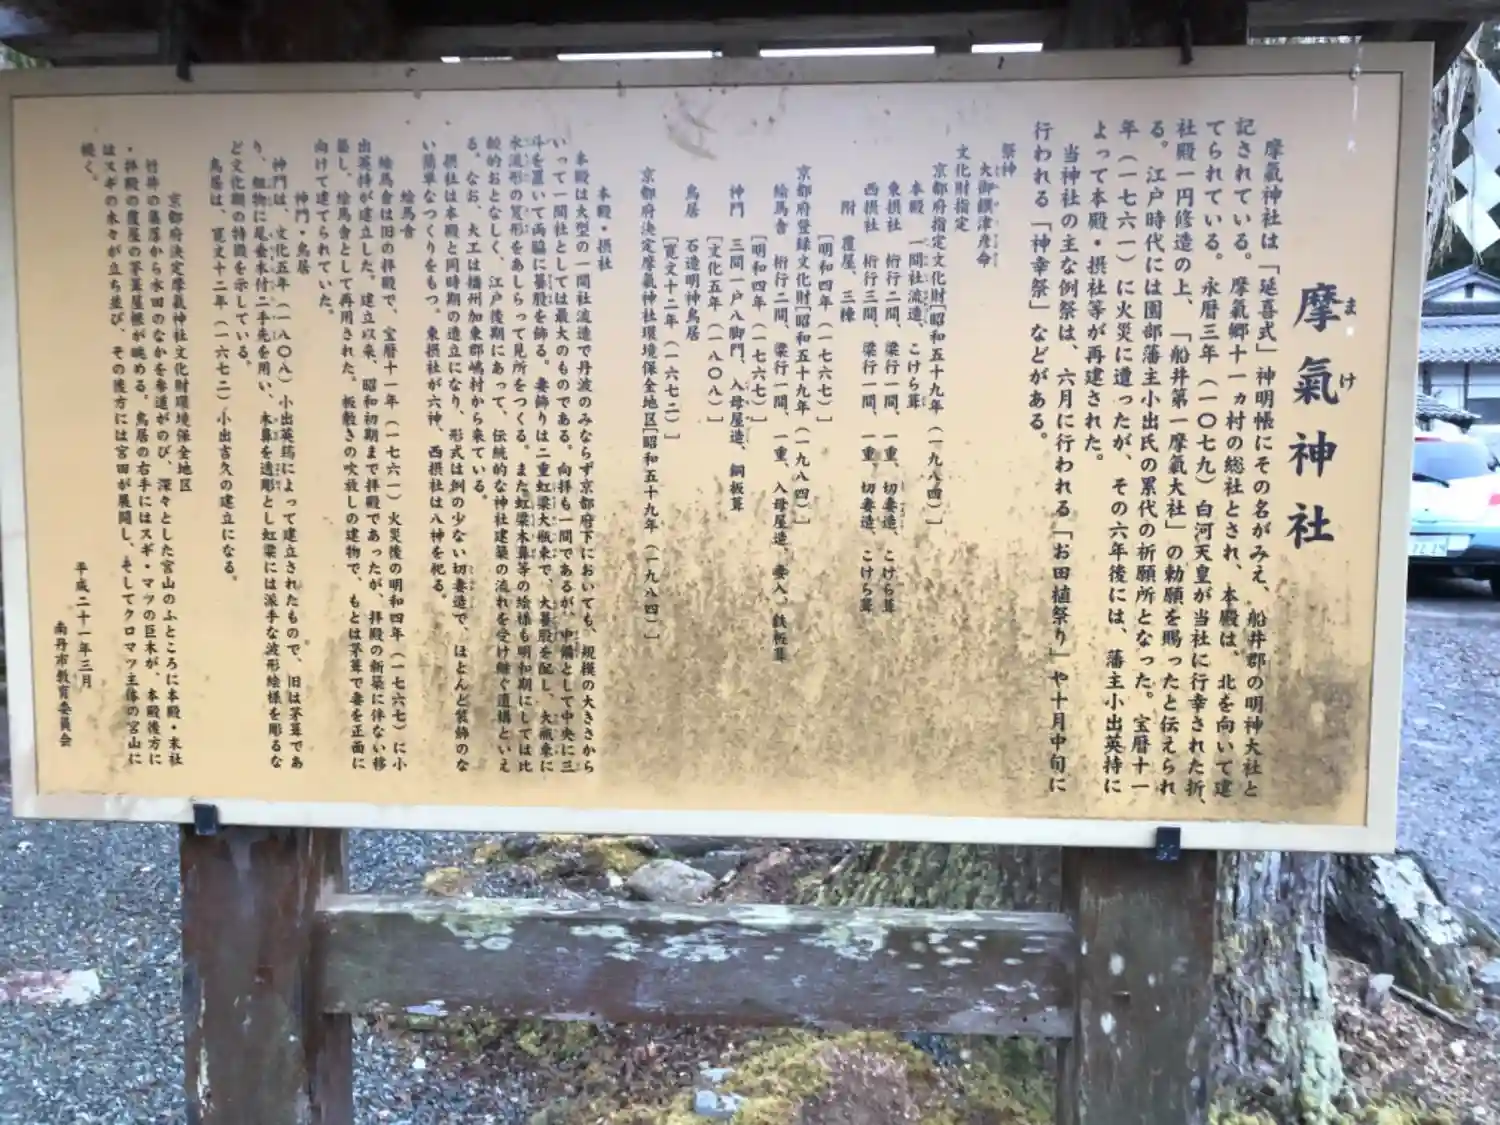 摩氣神社
ま け
摩氣神社は「延喜式」神明帳にその名がみえ、船井郡の明神大社と
記されている。摩氣郷十一ヵ村の総社とされ、本殿は、北を向いて建
てられている。永暦三年（一〇七九）白河天皇が当社に行幸された折、
社殿一円修造の上、「船井第一摩氣大社」の勅願を賜ったと伝えられ
る。江戸時代には園部藩主小出氏の累代の祈願所となった。宝暦十一
年（一七六一）に火災に遭ったが、その六年後には、藩主小出英持に
よって本殿・摂社等が再建された。
当神社の主な例祭は、六月に行われる「お田植祭り」や十月中旬に
行われる「神幸祭」などがある。
祭神
大御饌津彦命
文化財指定
京都府指定文化財［昭和五十九年（一九八四）］
本殿 一間社流造、こけら葺
東摂社 桁行二間、梁行一間、一重、切妻造、こけら葺
西摂社 桁行三間、梁行一間、一重、切妻造、こけら葺
附 覆屋、三棟
［明和四年（一七六七）］
京都府登録文化財［昭和五十九年（一九八四）］
絵馬舎 桁行二間、梁行一間、一重、入母屋造、妻入、鉄板葺
［明和四年（一七六七）］
神門 三間一戸八脚門、入母屋造、銅板葺
［文化五年（一八〇八）］
鳥居 石造明神鳥居
［寛文十二年（一六七二）］
京都府決定摩氣神社環境保全地区［昭和五十九年（一九八四）］
本殿・摂社
本殿は大型の一間社流造で丹波のみならず京都府下においても、規模の大きさから
いって一間社としては最大のものである。向拝も一間であるが、中備として中央に三
斗を置いて両脇に蟇股を飾る。妻飾りは二重虹梁大瓶束で、大蟇股を配し、大瓶束に
水流形の笈形をあしらって見所をつくる。また虹梁木鼻等の絵様も明和期にしては比
較的おとなしく、江戸後期にあって、伝統的な神社建築の流れを受け継ぐ遺構といえ
る。なお、大工は播州加東郡嶋村から来ている。
摂社は本殿と同時期の造立になり、形式は例の少ない切妻造で、ほとんど装飾のな
い簡単なつくりをもつ。東摂社が六神、西摂社は八神を祀る。
絵馬舎
絵馬舎は旧の拝殿で、宝暦十一年（一七六一）火災後の明和四年（一七六七）に小
出英持が建立した。建立以来、昭和初期まで拝殿であったが、拝殿の新築に伴ない移
築し、絵馬舎として再用された。板敷きの吹放しの建物で、もとは茅葺で妻を正面に
向けて建てられていた。
神門・鳥居
神門は、文化五年（一八〇八）小出英筠によって建立されたもので、旧は茅葺であ
り、組物に尾垂木付二手先を用い、木鼻を透彫とし虹梁には派手な波形絵様を彫るな
ど文化期の特徴を示している。
鳥居は、寛文十二年（一六七二）小出吉久の建立になる。
京都府決定摩氣神社文化財環境保全地区
竹井の集落から水田のなかを参道がのび、深々とした宮山のふところに本殿・末社
・拝殿の覆屋の茅葺屋根が眺める。鳥居の右手にはスギ・マツの巨木が、本殿後方に
はスギの木々が立ち並び、その後方には宮田が展開し、そしてクロマツ主体の宮山に
続く。
平成二十一年三月
南丹市教育委員会